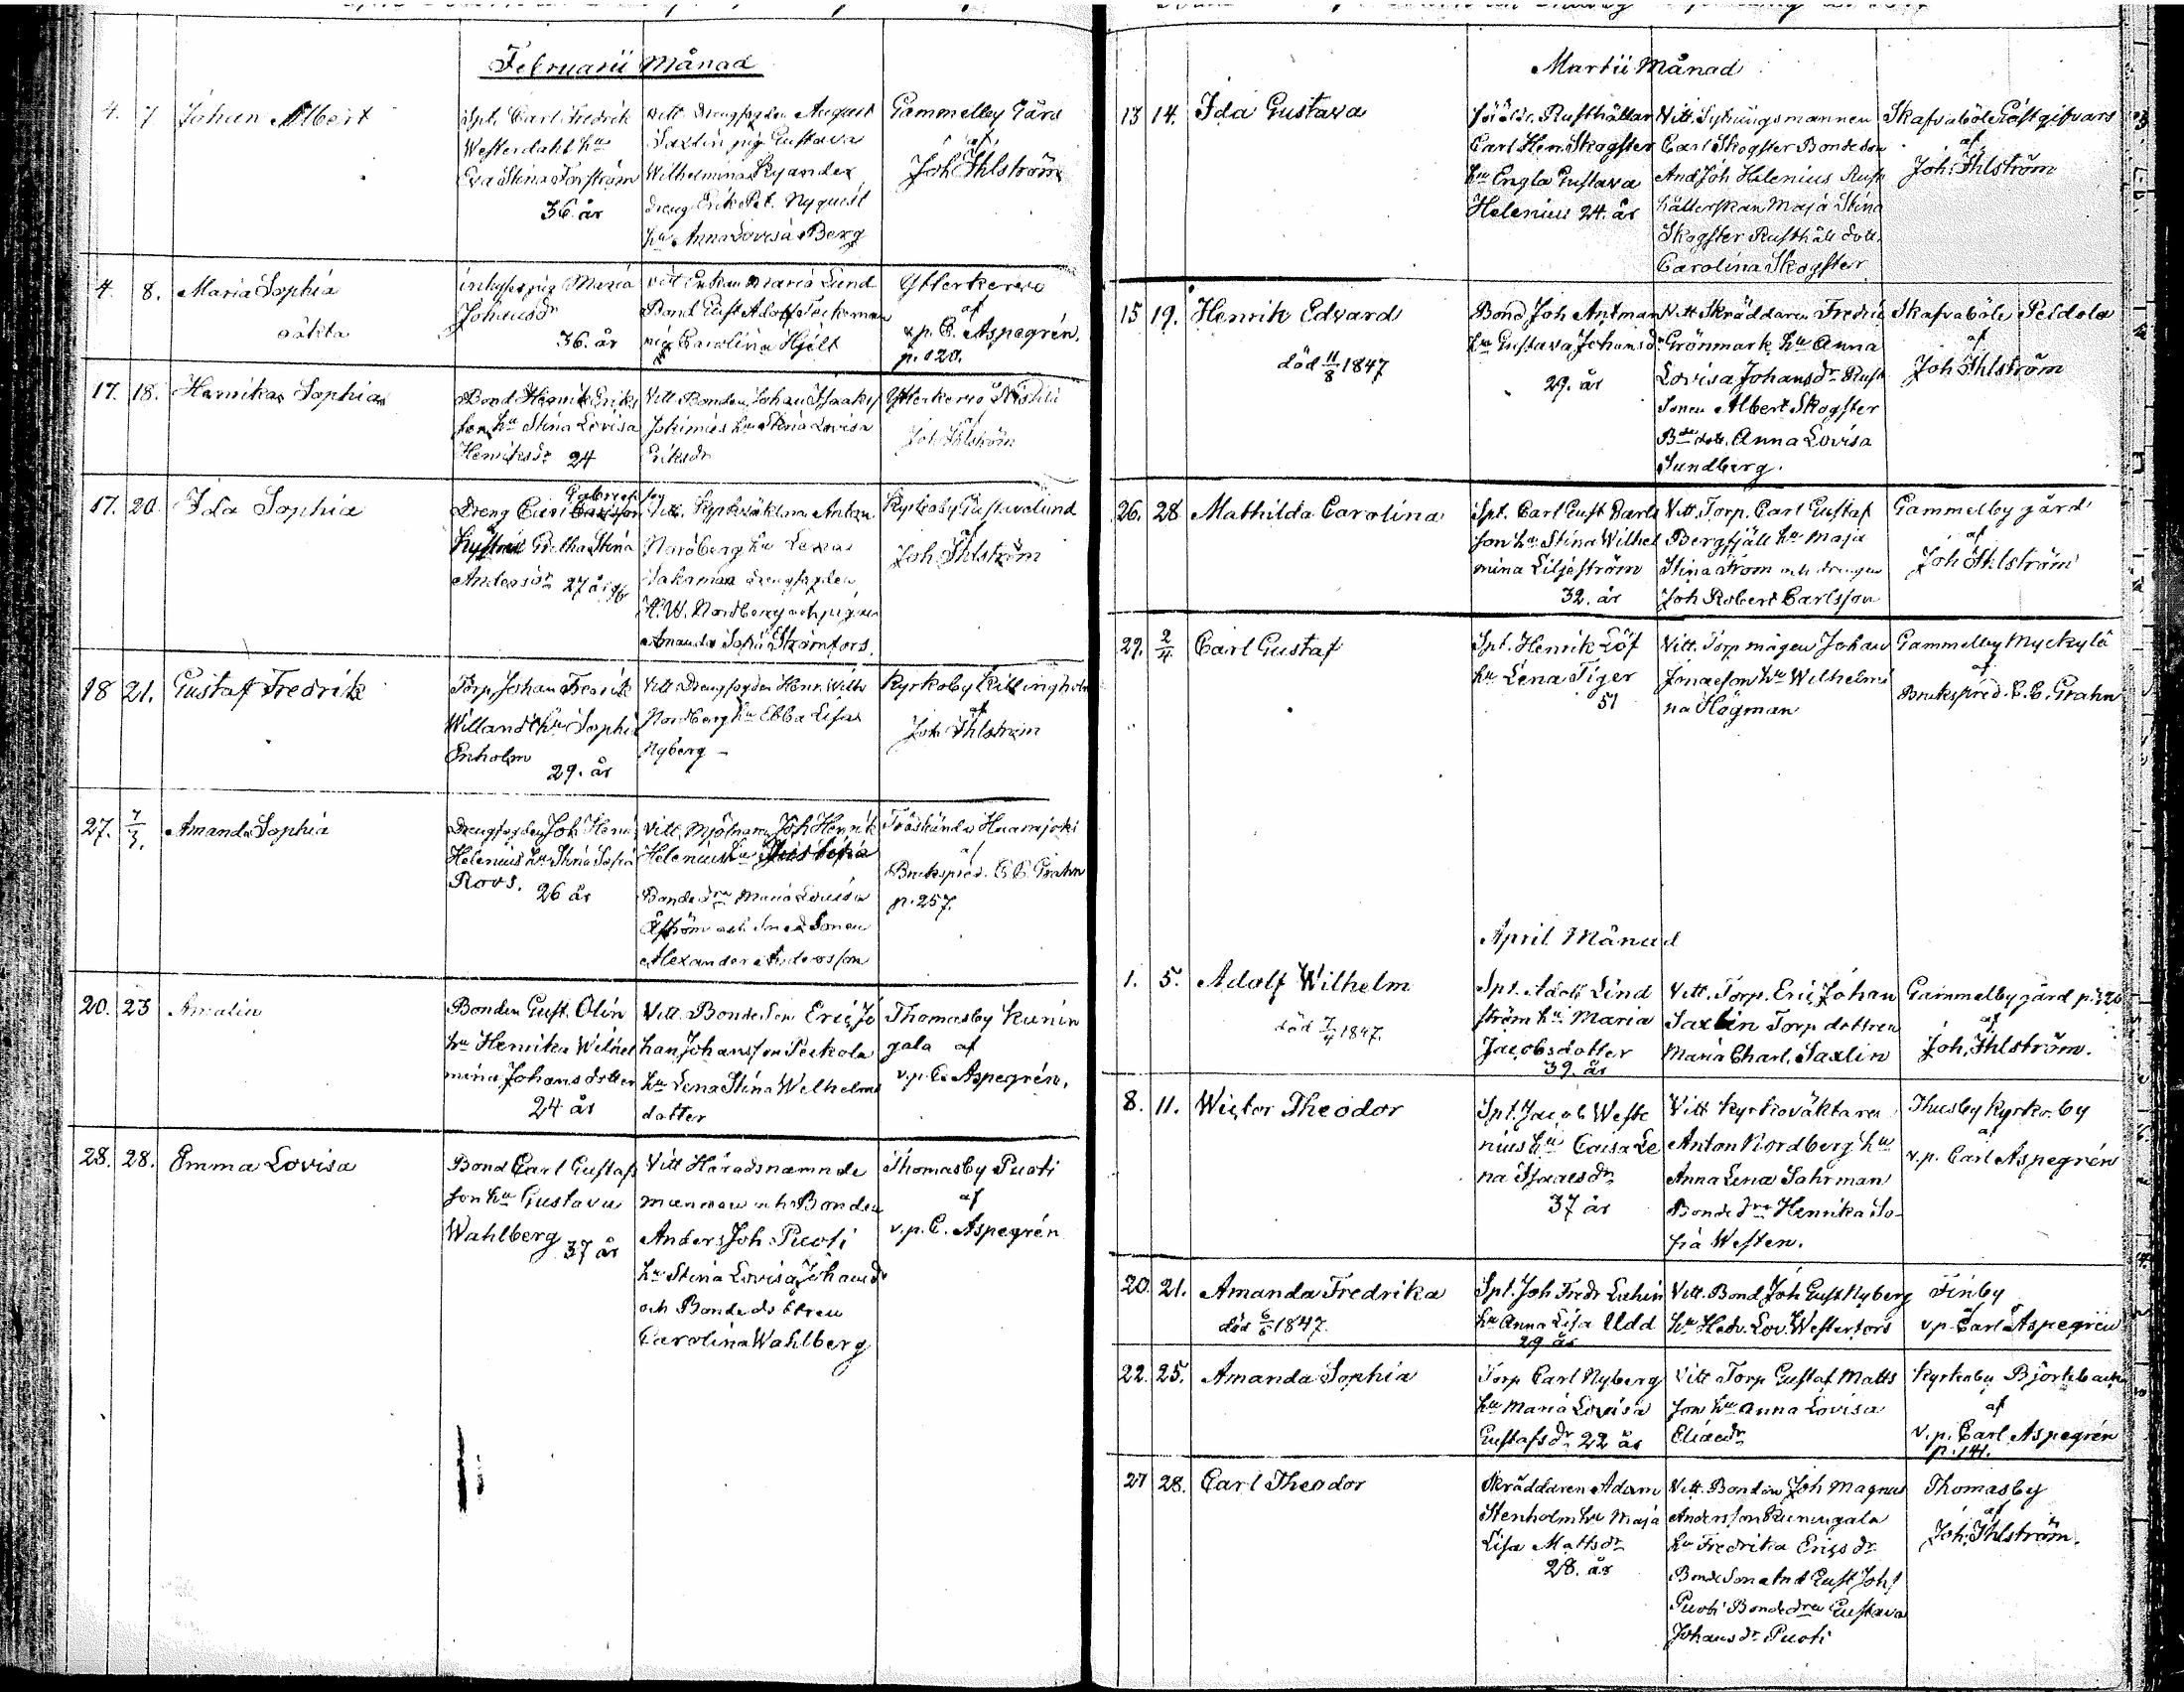 Februarii Månad
4. 7 Johan Albert
Spt. Carl Fredrik
Westerdahl hu
Eva Stina Forström
36 år
Vitt. Drengfogden August
Saxlin pig Gustava
Wilhelmina Ryander
dreng Erik Pet. Nyquist
hu Anna Lovisa Berg
Gammelby Gård
af
Joh Ihlström
4. 8. Maria Sophia
oäkta
inhyses pig Maria
Johansdr
36. år
Vitt Enkan Maria Lund
Bond Gust Adolf
pig Carolina Hjelt
Ytterkervo
af
v.p. C. Aspegrén.
p. 120.
17. 18. Henrika Sophia
Bond Henrik Eriks
son hu Stina Lovisa
Henriksdr 24
Vitt. Bonden Johan Isaaks
Jokimies hu Stina Lovisa
Eriksdr
Ytterkervo
af
Joh Ihlström
17. 20 Ida Sophia
Gabrielsson
Dreng
Gretha Stina
Andersdr 27 år
Vitt. Kyrkväktaren Anton
Nordberg hu Lena
drengfogden
H. W. Nordberg och pigan
Amanda Sofia Strömfors.
Kyrkoby Gustavelund
af
Joh Ihlström
18 21. Gustaf Fredrik
Torp Johan Fredrik
Willandt hu Sophia
Enholm
29. år
Vitt Drengfogden Henr. Wilh
Nordberg hu Ebba Lisa
Nyberg –
Kyrkoby Killingholm
af
Joh Ihlström
27. 7/3. Amanda Sophia
Drengfogden Joh Henr
Helenius hu Stina Sofia
Roos.
26 år
Vitt. Mjölnaren Joh Henrik
Helenius hu
Bondedrn Maria Lovisa
Åström och
Alexander Andersson
Träskända Haarajoki
af
Brukspred. C. C. Grahn
p. 257.
20. 23 Amalia
Bonden Gust. Olin
hu Henrika Wilhel
mina Johansdotter
24 år
Vitt. Bonde Son Eric Jo
han Johansson Peckola
hu Lena Stina Wilhelms
dotter
Thomasby Kunin
gala af
v.p. C. Aspegrén.
28. 28. Emma Lovisa
Bond Carl Gustafs
son hu Gustava
Wahlberg 37 år
Vitt Häradsnämnde
mannen och Bonden
Anders Joh. Puoti
hu Stina Lovisa Johansdr
och Bondedottren
Carolina Wahlberg
Thomasby Puoti
af
v.p. C. Aspegrén
Martii Månad
13 14. Ida Gustava
Rusthållar
Carl Henr Skogster
hu Engla Gustava
Helenius 24. år
Vitt. Sexmannen
Carl Skogster Bondeson
And Joh Helenius Rust
hållerskan Maja Stina
Skogster Rusthåll dott.
Carolina Skogster
Skafvaböle Gästgifvars
af
Joh. Ihlström
15 19. Henrik Edvard
död 11/8 1847
Bond Joh Antman
hu Gustava Johansdr
29. år
Vitt Skräddaren Fredric
Grönmark hu Anna
Lovisa Johansdr Rust
Sonen Albert Skogster
Bde dott. Anna Lovisa
Sundberg.
Skafvaböle Peldola
af
Joh Ihlström
26. 28 Mathilda Carolina
Spt. Carl Gust Carls
son hu Stina Wilhel
mina Liljeström
32. år
Vitt. Torp. Carl Gustaf
Bergfjäll hu Maja
Stina Strom och drengen
Joh Robert Carlsson
Gammelby gård
af
Joh Ihlström
29. 2/4 Carl Gustaf
Spt. Henrik Löf
hu Lena Tiger
51
Vitt. Torp mågen Johan
Jonasson hu Wilhelmi
na Högman
Gammelby Myckylä
af
Brukspred. C. C. Grahn
April Månad
1. 5. Adolf Wilhelm
död 7/4 1847.
Spt. Adolf Lind
ström hu Maria
Jacobsdotter
39. år
Vitt. Torp. Eric Johan
Saxlin Torp dottren
Maria Charl. Saxlin
Gammelby gård
af
Joh. Ihlström.
8. 11. Wictor Theodor
Spt. Jacob Weste
nius hu Caisa Le
na Isaacsdr
37 år
Vitt Kyrkoväktaren
Anton Nordberg hu
Anna Lena Sahrman
Bondedrn Henrika So-
fia Westen.
Thusby Kyrkoby
af
v.p. Carl Aspegrén
20. 21. Amanda Fredrika
död 6/6 1847.
Spt. Joh Fredr Luhin
hu Anna Lisa Udd
29 år
Vitt. Bond Joh Gust Nyberg
hu Hedv. Lov. Westerfors
Finby
af
v.p. Carl Aspegrén
22. 25. Amanda Sophia
Torp Carl Nyberg
hu Maria Lovisa
Gustafsdr 22 år
Vitt Torp Gustaf Matts
son hu Anna Lovisa
Eliaedr
Kyrkoby Björkbacka
af
v.p. Carl Aspegrén
p. 141.
27 28. Carl Theodor
Skräddaren Adam
Stenholm hu Maja
Lisa Mattsdr
28. år
Vitt. Bonden Joh Magnus
Andersson Kuningala
hu Fredrika Ericsdr
Bonde Son And Gust Johs
Puoti Bondedren Gustava
Johansdr. Puoti
Thomasby
af
Joh. Ihlström.